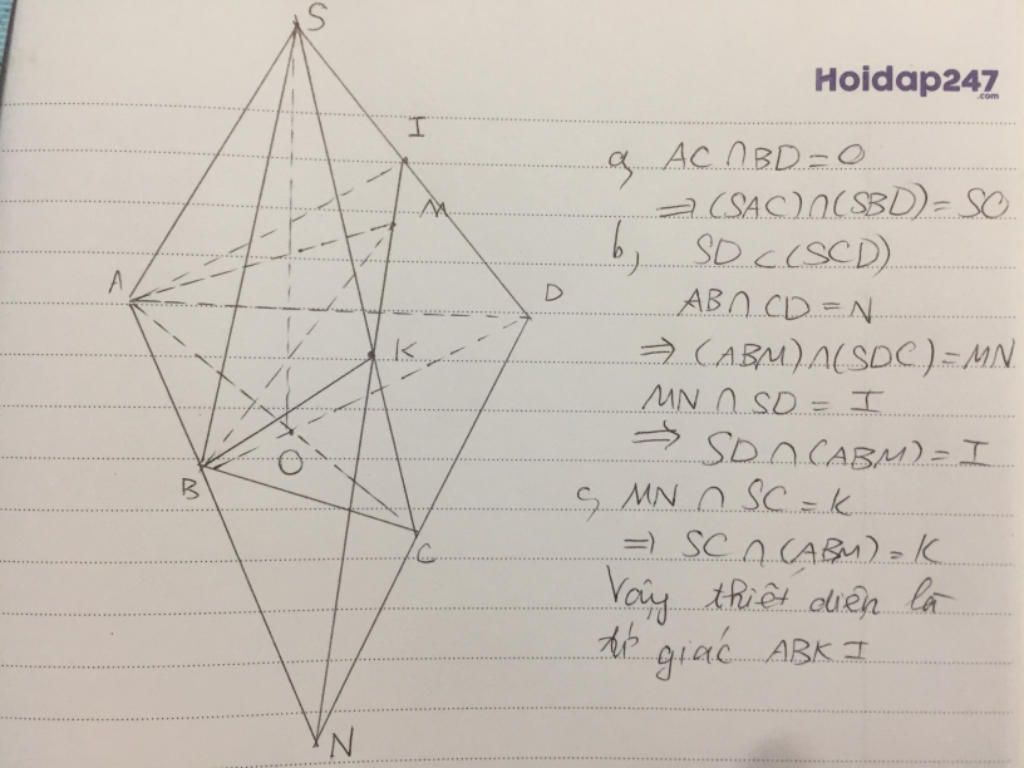 S
Hoidap247
.com
I
a, AC ∩ BD = O
M
⇒ (SAC) ∩ (SBD) = SO
b, SD ⊂ (SCD)
A
D
AB ∩ CD = N
K
⇒ (ABM) ∩ (SDC) = MN
MN ∩ SD = I
⇒ SD ∩ (ABM) = I
O
B
c, MN ∩ SC = K
C
⇒ SC ∩ (ABM) = K
Vậy thiết diện là
tứ giác ABKI
N